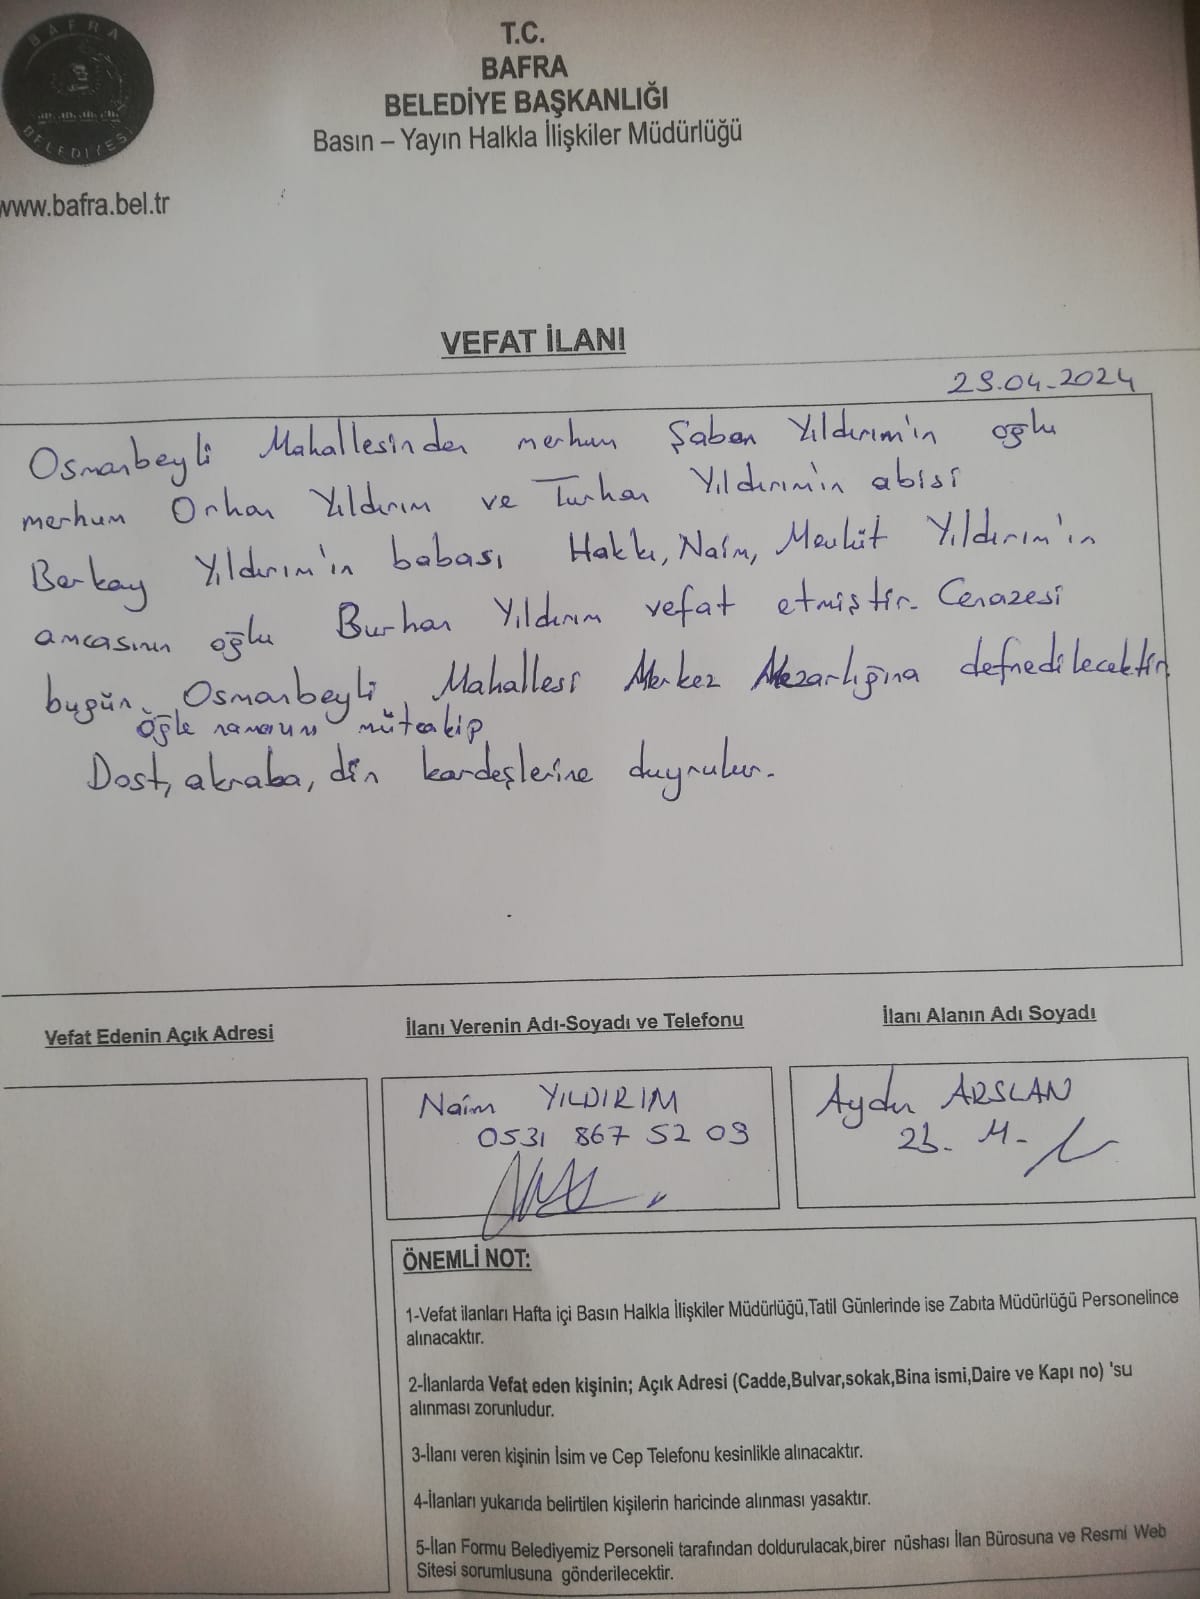 BAFRA
BELEDİYESİ
T.C.
BAFRA
BELEDİYE BAŞKANLIĞI
Basın – Yayın Halkla İlişkiler Müdürlüğü
www.bafra.bel.tr
VEFAT İLANI
29.04.2024
Osmanbeyli Mahallesinden merhum Şaban Yıldırım'ın oğlu
merhum Orhan Yıldırım ve Turhan Yıldırım'ın abisi
Berkay Yıldırım'ın babası Hakkı, Naim, Mevlüt Yıldırım'ın
amcasının oğlu Burhan Yıldırım vefat etmiştir. Cenazesi
bugün Osmanbeyli Mahallesi Merkez Mezarlığına defnedilecektir.
öğle namazını müteakip
Dost, akraba, din kardeşlerine duyrulur.
Vefat Edenin Açık Adresi
İlanı Verenin Adı-Soyadı ve Telefonu
İlanı Alanın Adı Soyadı
Naim YILDIRIM
0531 867 52 09
Aydın ARSLAN
ÖNEMLİ NOT:
1-Vefat ilanları Hafta içi Basın Halkla İlişkiler Müdürlüğü,Tatil Günlerinde ise Zabıta Müdürlüğü Personelince
alınacaktır.
2-İlanlarda Vefat eden kişinin; Açık Adresi (Cadde,Bulvar,sokak,Bina ismi,Daire ve Kapı no) 'su
alınması zorunludur.
3-İlanı veren kişinin İsim ve Cep Telefonu kesinlikle alınacaktır.
4-İlanları yukarıda belirtilen kişilerin haricinde alınması yasaktır.
5-İlan Formu Belediyemiz Personeli tarafından doldurulacak,birer nüshası İlan Bürosuna ve Resmi Web
Sitesi sorumlusuna gönderilecektir.